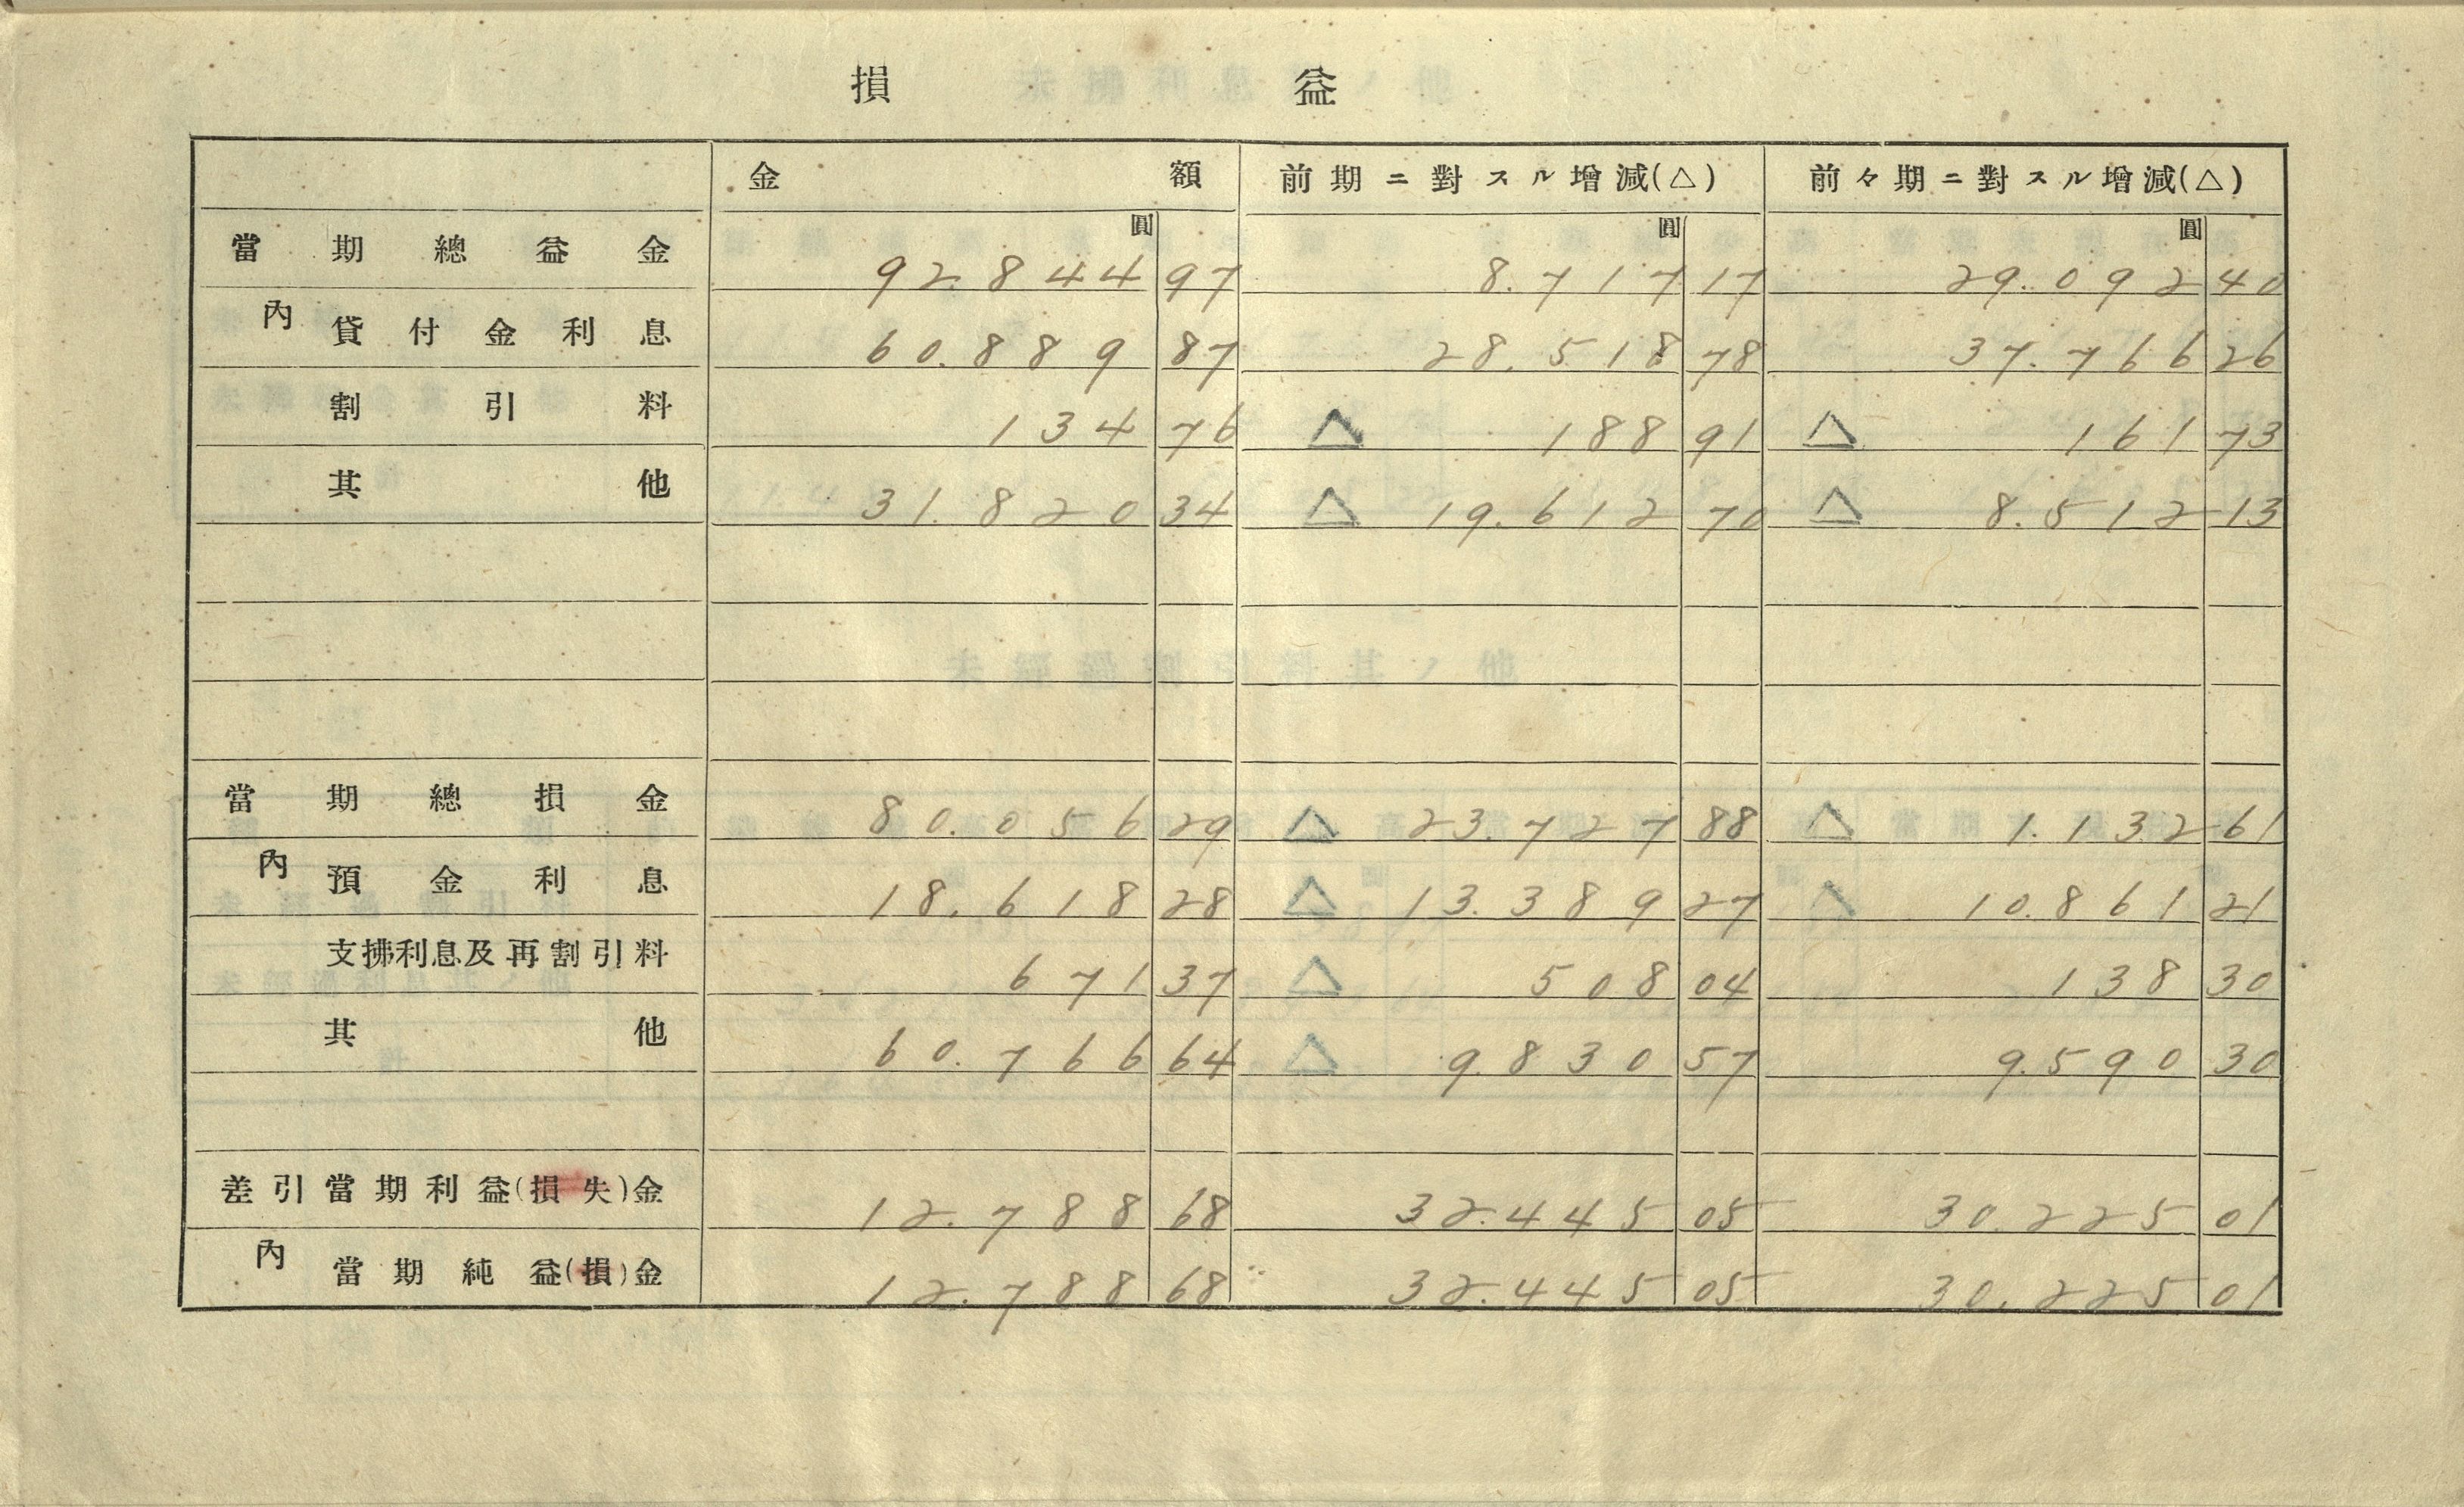 損益
金額 前期ニ對スル增減(△) 前々期ニ對スル增減(△)
圓 圓 圓
當期總益金 92.844 97 8.717 17 29.092 40
內 貸付金利息 60.889 87 28.518 78 37.766 26
割引料 134 76 △ 188 91 △ 161 73
其他 31.820 34 △ 19.612 70 △ 8.512 13
當期總損金 80.056 29 △ 23.727 88 △ 1.132 61
內 預金利息 18.618 28 △ 13.389 27 △ 10.861 21
支拂利息及再割引料 671 37 △ 508 04 138 30
其他 60.766 64 △ 9.830 57 9.590 30
差引當期利益(損失)金 12.788 68 32.445 05 30.225 01
內 當期純益(損)金 12.788 68 32.445 05 30.225 01